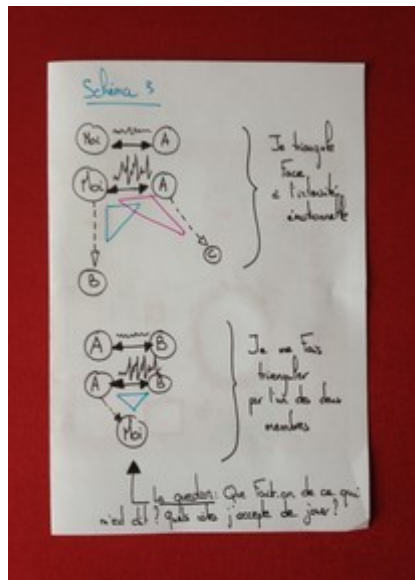 Schéma 3
Moi A
Moi A
B
C
Je triangule
Face
à l'intensité
émotionnelle
A B
A B
Moi
Je me Fais
trianguler
par l'un des deux
membres
La question: Que Fait-on de ce qui
m'est dit? quels rôles j'accepte de jouer?